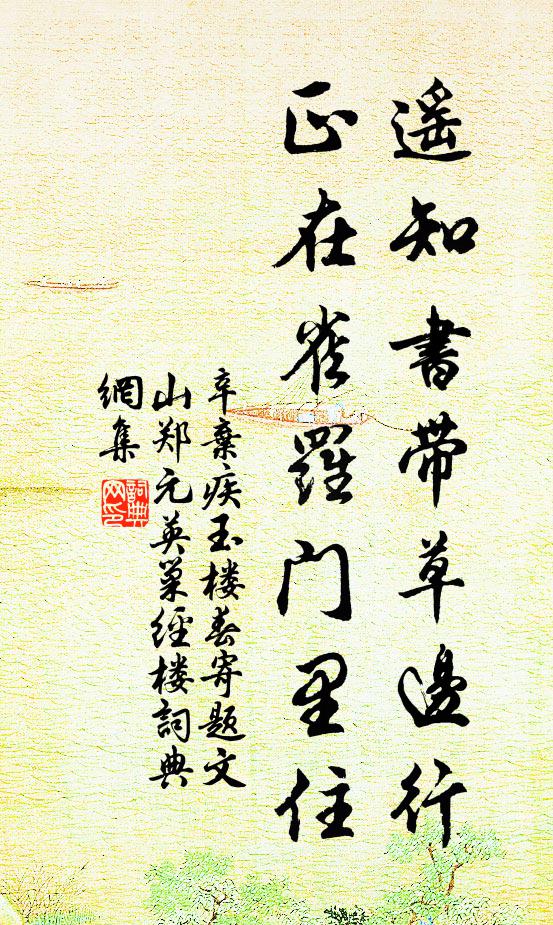 遥知書帶草邊行
正在雀羅門里住
辛棄疾玉楼春寄题文
山郑元英巢經楼詞典
網集
詞典网印